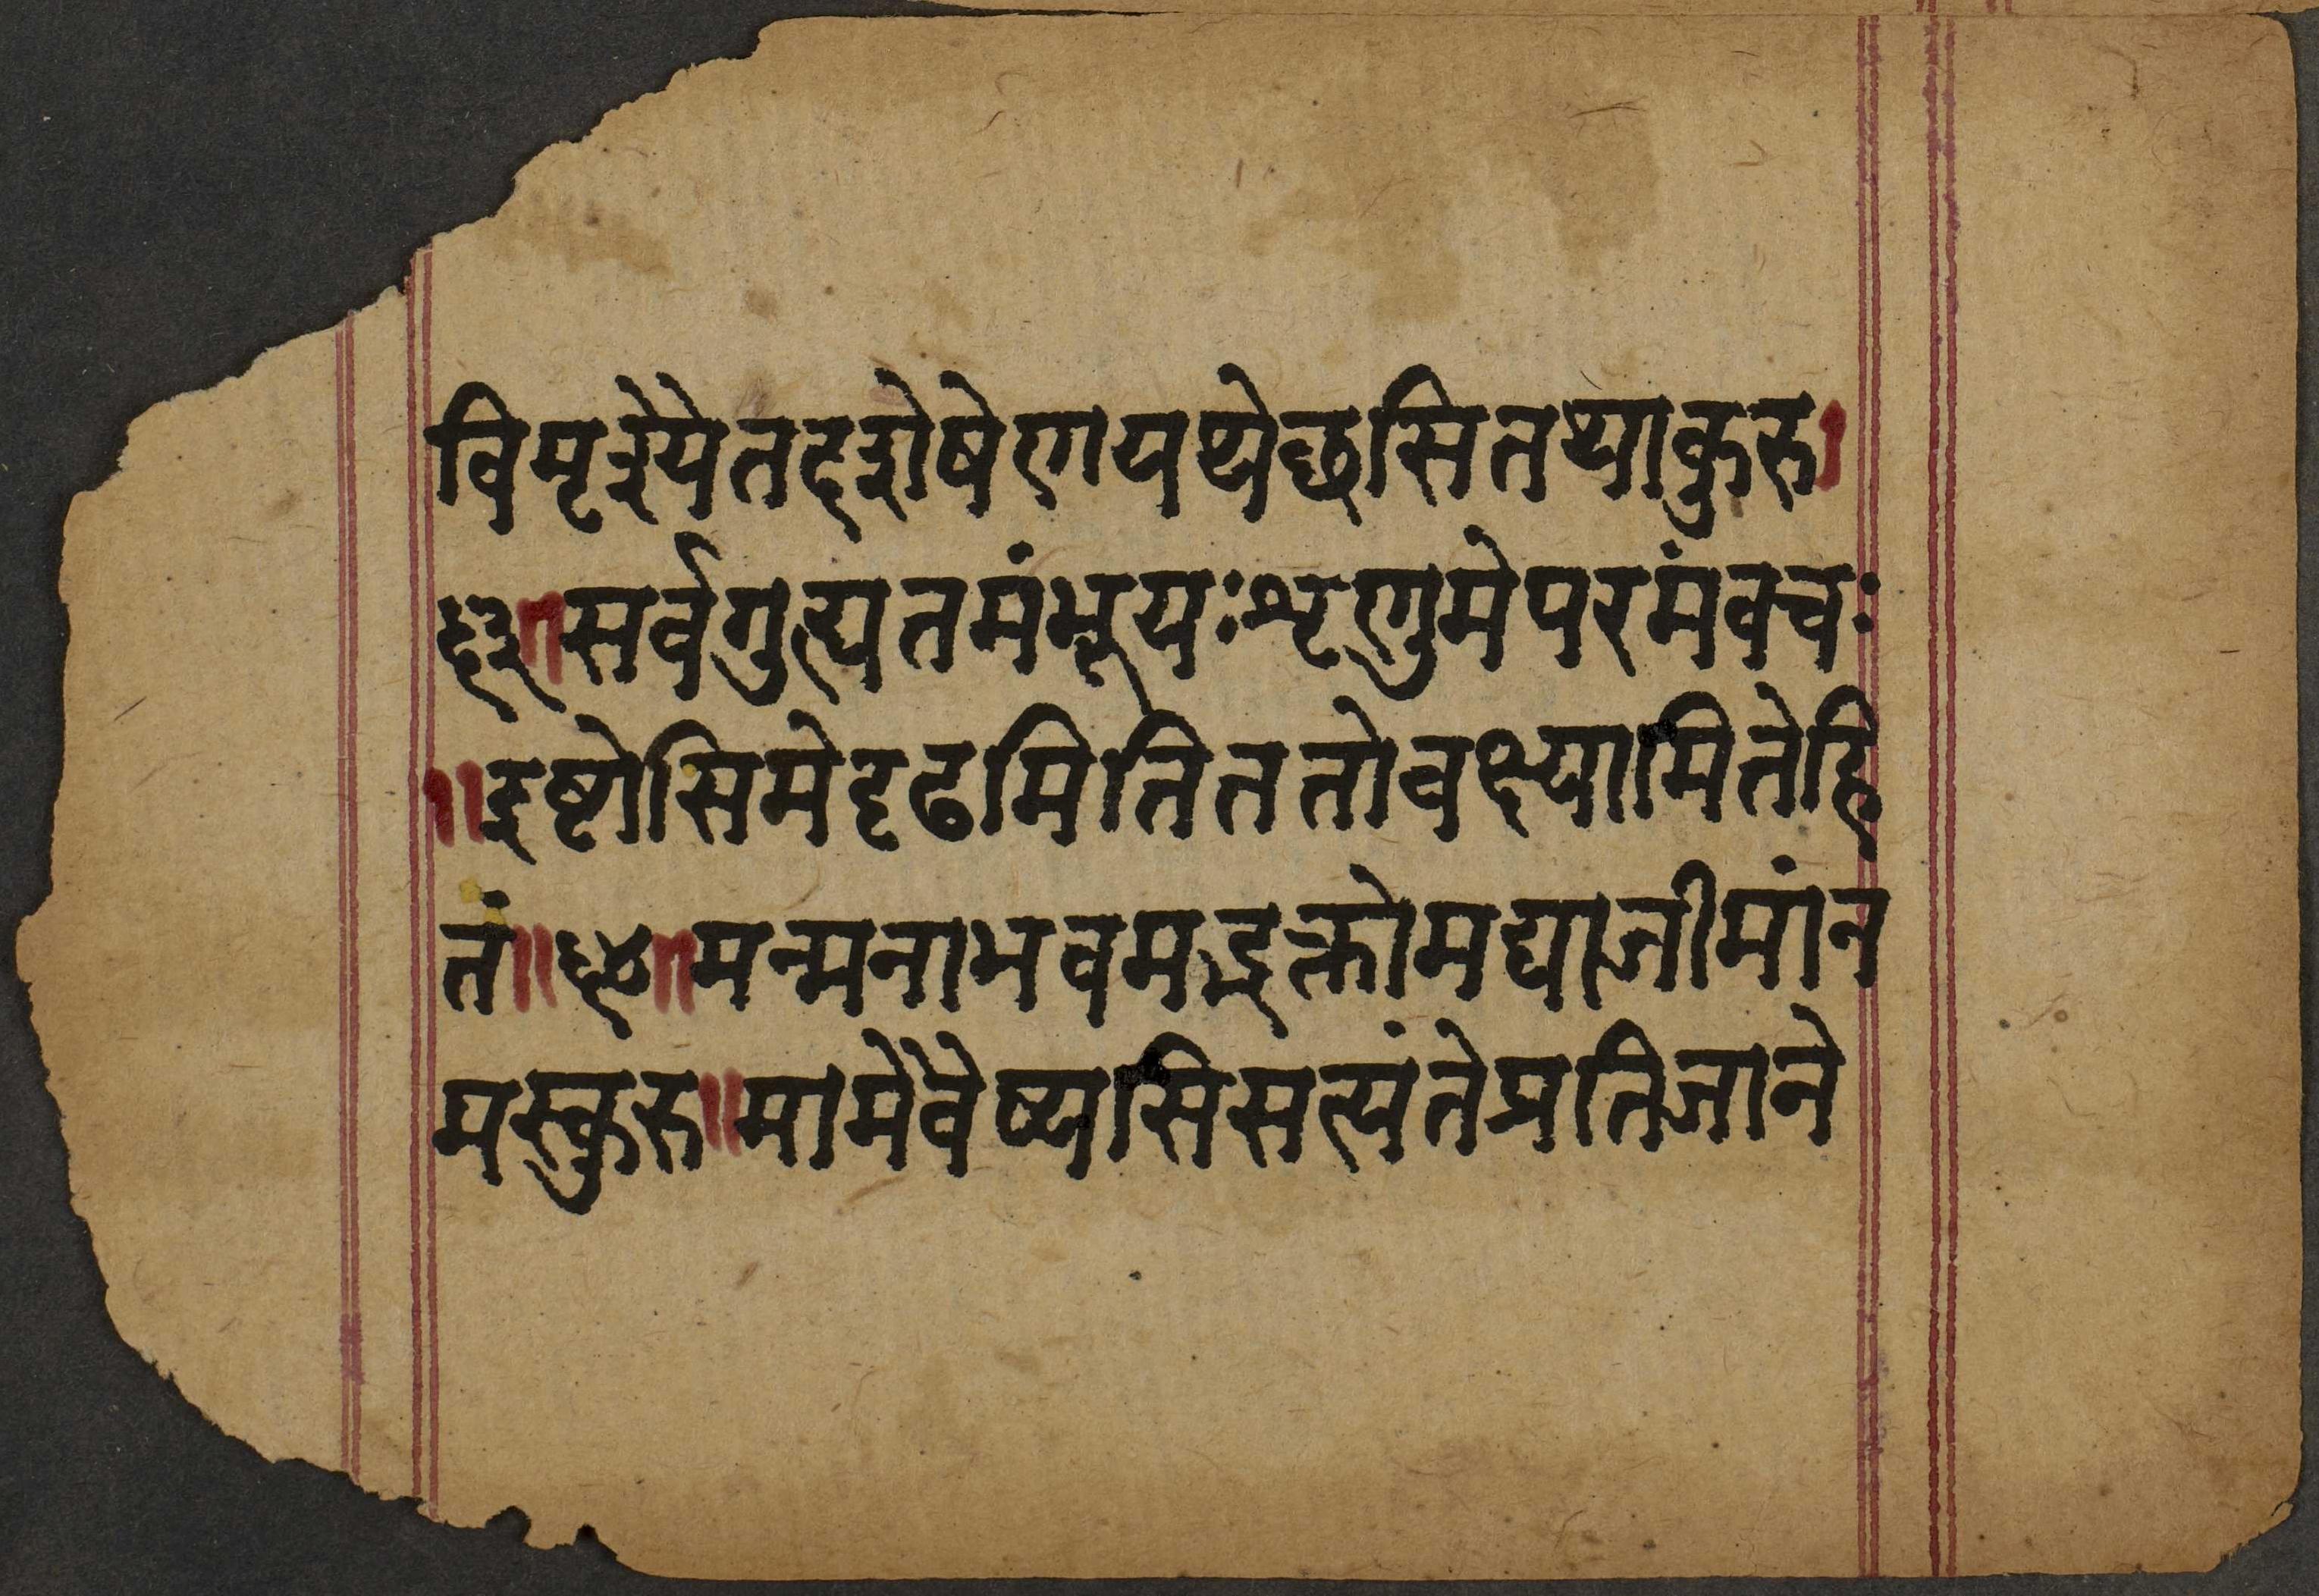 विमृश्यैतदशेषेणयथेछसितथाकुरु।
६३॥सर्वगुह्यतमंभूयःशृणुमेपरमंवचः
॥इष्टोसिमेदृढमितिततोवक्ष्यामितेहि
तं॥६४॥मन्मनाभवमद्भक्तोमद्याजीमांन
मस्कुरु॥मामेवैष्यसिसत्यंतेप्रतिजाने